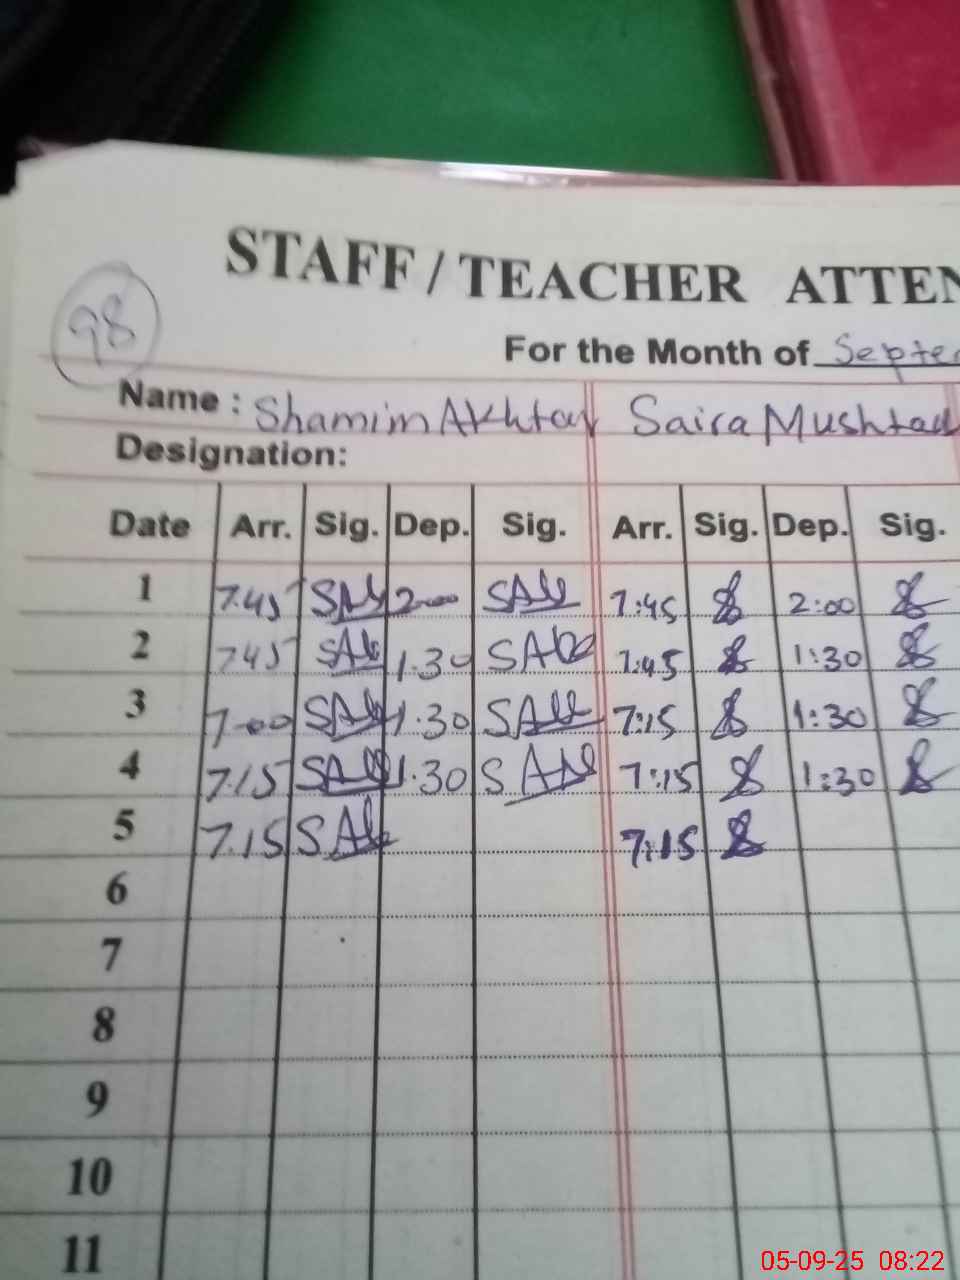 STAFF / TEACHER ATTEN
98
For the Month of Septe
Name : Shamim Akhtar Saira Mushtaq
Designation:
Date Arr. Sig. Dep. Sig. Arr. Sig. Dep. Sig.
1 7.45 2-00 7:45 2:00
2 7.45 1.30 7:45 1:30
3 7-00 1.30 7:15 1:30
4 7.15 1.30 7:15 1:30
5 7.15 7:15
6
7
8
9
10
11
05-09-25 08:22